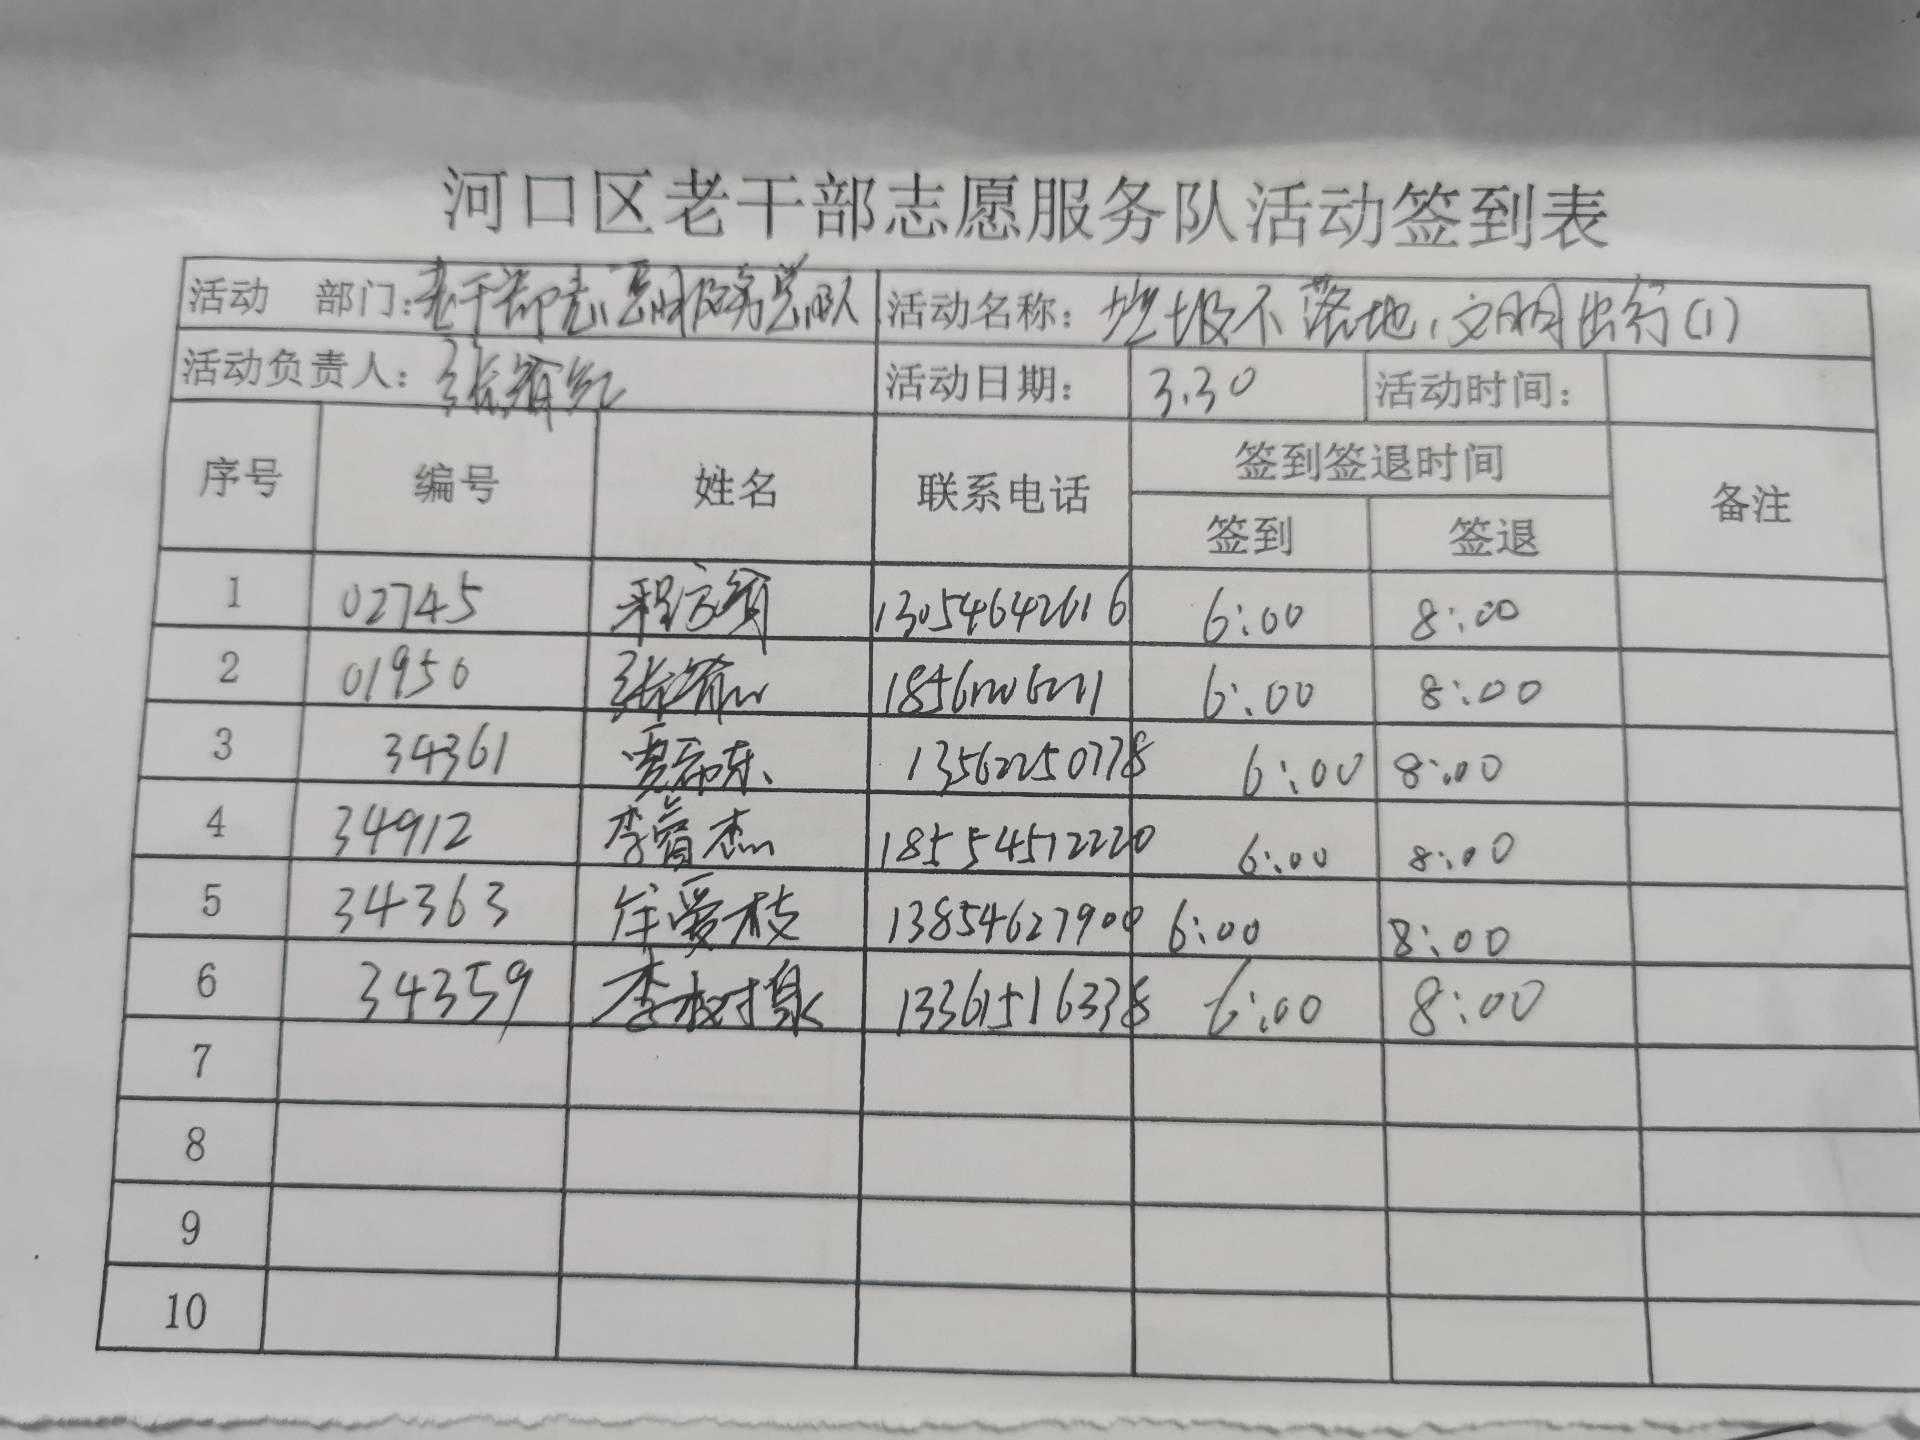 河口区老干部志愿服务队活动签到表
活动 部门：老干部志愿服务总队 活动名称：垃圾不落地，文明出行(1)
活动负责人：张 活动日期： 3.30 活动时间：
序号 编号 姓名 联系电话 签到签退时间 备注
签到 签退
1 02745 程 13054642616 6:00 8:00
2 01950 张 6:00 8:00
3 34361 贾 13562250778 6:00 8:00
4 34912 李 杰 18554512220 6:00 8:00
5 34363 任爱枝 13854627900 6:00 8:00
6 34359 李树泉 13361516338 6:00 8:00
7
8
9
10